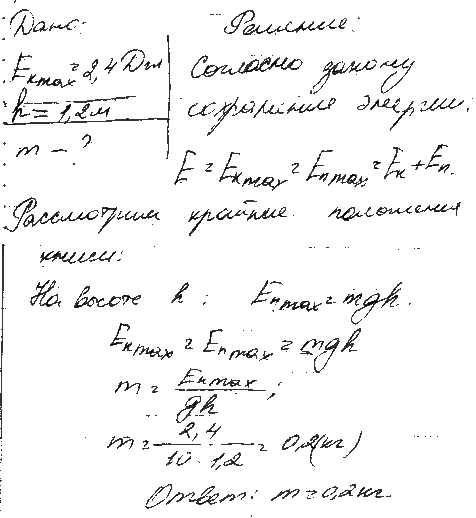 Дано:
E_кmax = 2,4 Дж
h = 1,2 м
m - ?
Решение:
Согласно закону
сохранения энергии:
E = E_кmax = E_пmax = E_к + E_п.
Рассмотрим крайние положения
книги:
На высоте h: E_пmax = mgh.
E_кmax = E_пmax = mgh
m = E_кmax / gh ;
m = 2,4 / 10 · 1,2 = 0,2 (кг)
Ответ: m = 0,2 кг.